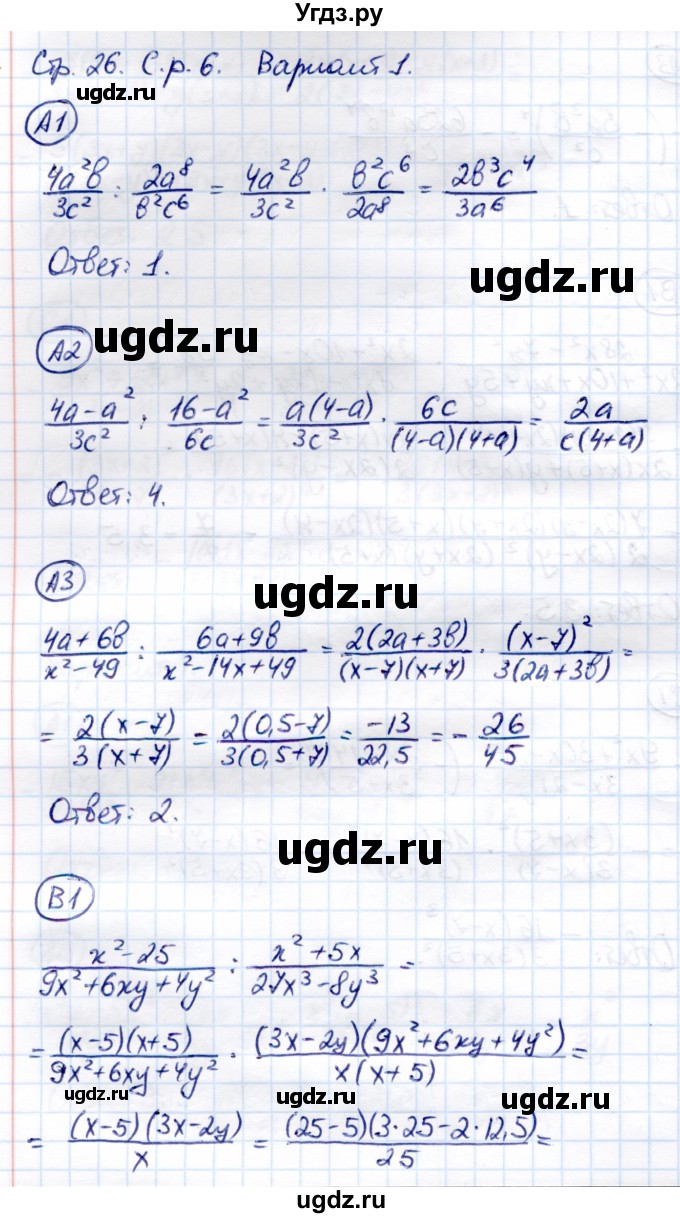 Угдз.ру
Стр. 26. С.р. 6. Вариант 1.
ugdz.ru
А1
4a²b/3c² : 2a⁸/b²c⁶ = 4a²b/3c² · b²c⁶/2a⁸ = 2b³c⁴/3a⁶
Ответ: 1.
ugdz.ru
ugdz.ru
А2
4a-a²/3c² : 16-a²/6c = a(4-a)/3c² · 6c/(4-a)(4+a) = 2a/c(4+a)
Ответ: 4.
А3
ugdz.ru
4a+6b/x²-49 : 6a+9b/x²-14x+49 = 2(2a+3b)/(x-7)(x+7) · (x-7)²/3(2a+3b) =
= 2(x-7)/3(x+7) = 2(0,5-7)/3(0,5+7) = -13/22,5 = -26/45
Ответ: 2.
ugdz.ru
В1
x²-25/9x²+6xy+4y² : x²+5x/27x³-8y³ =
= (x-5)(x+5)/9x²+6xy+4y² · (3x-2y)(9x²+6xy+4y²)/x(x+5) =
ugdz.ru
ugdz.ru
= (x-5)(3x-2y)/x = (25-5)(3·25-2·12,5)/25 =
ugdz.ru